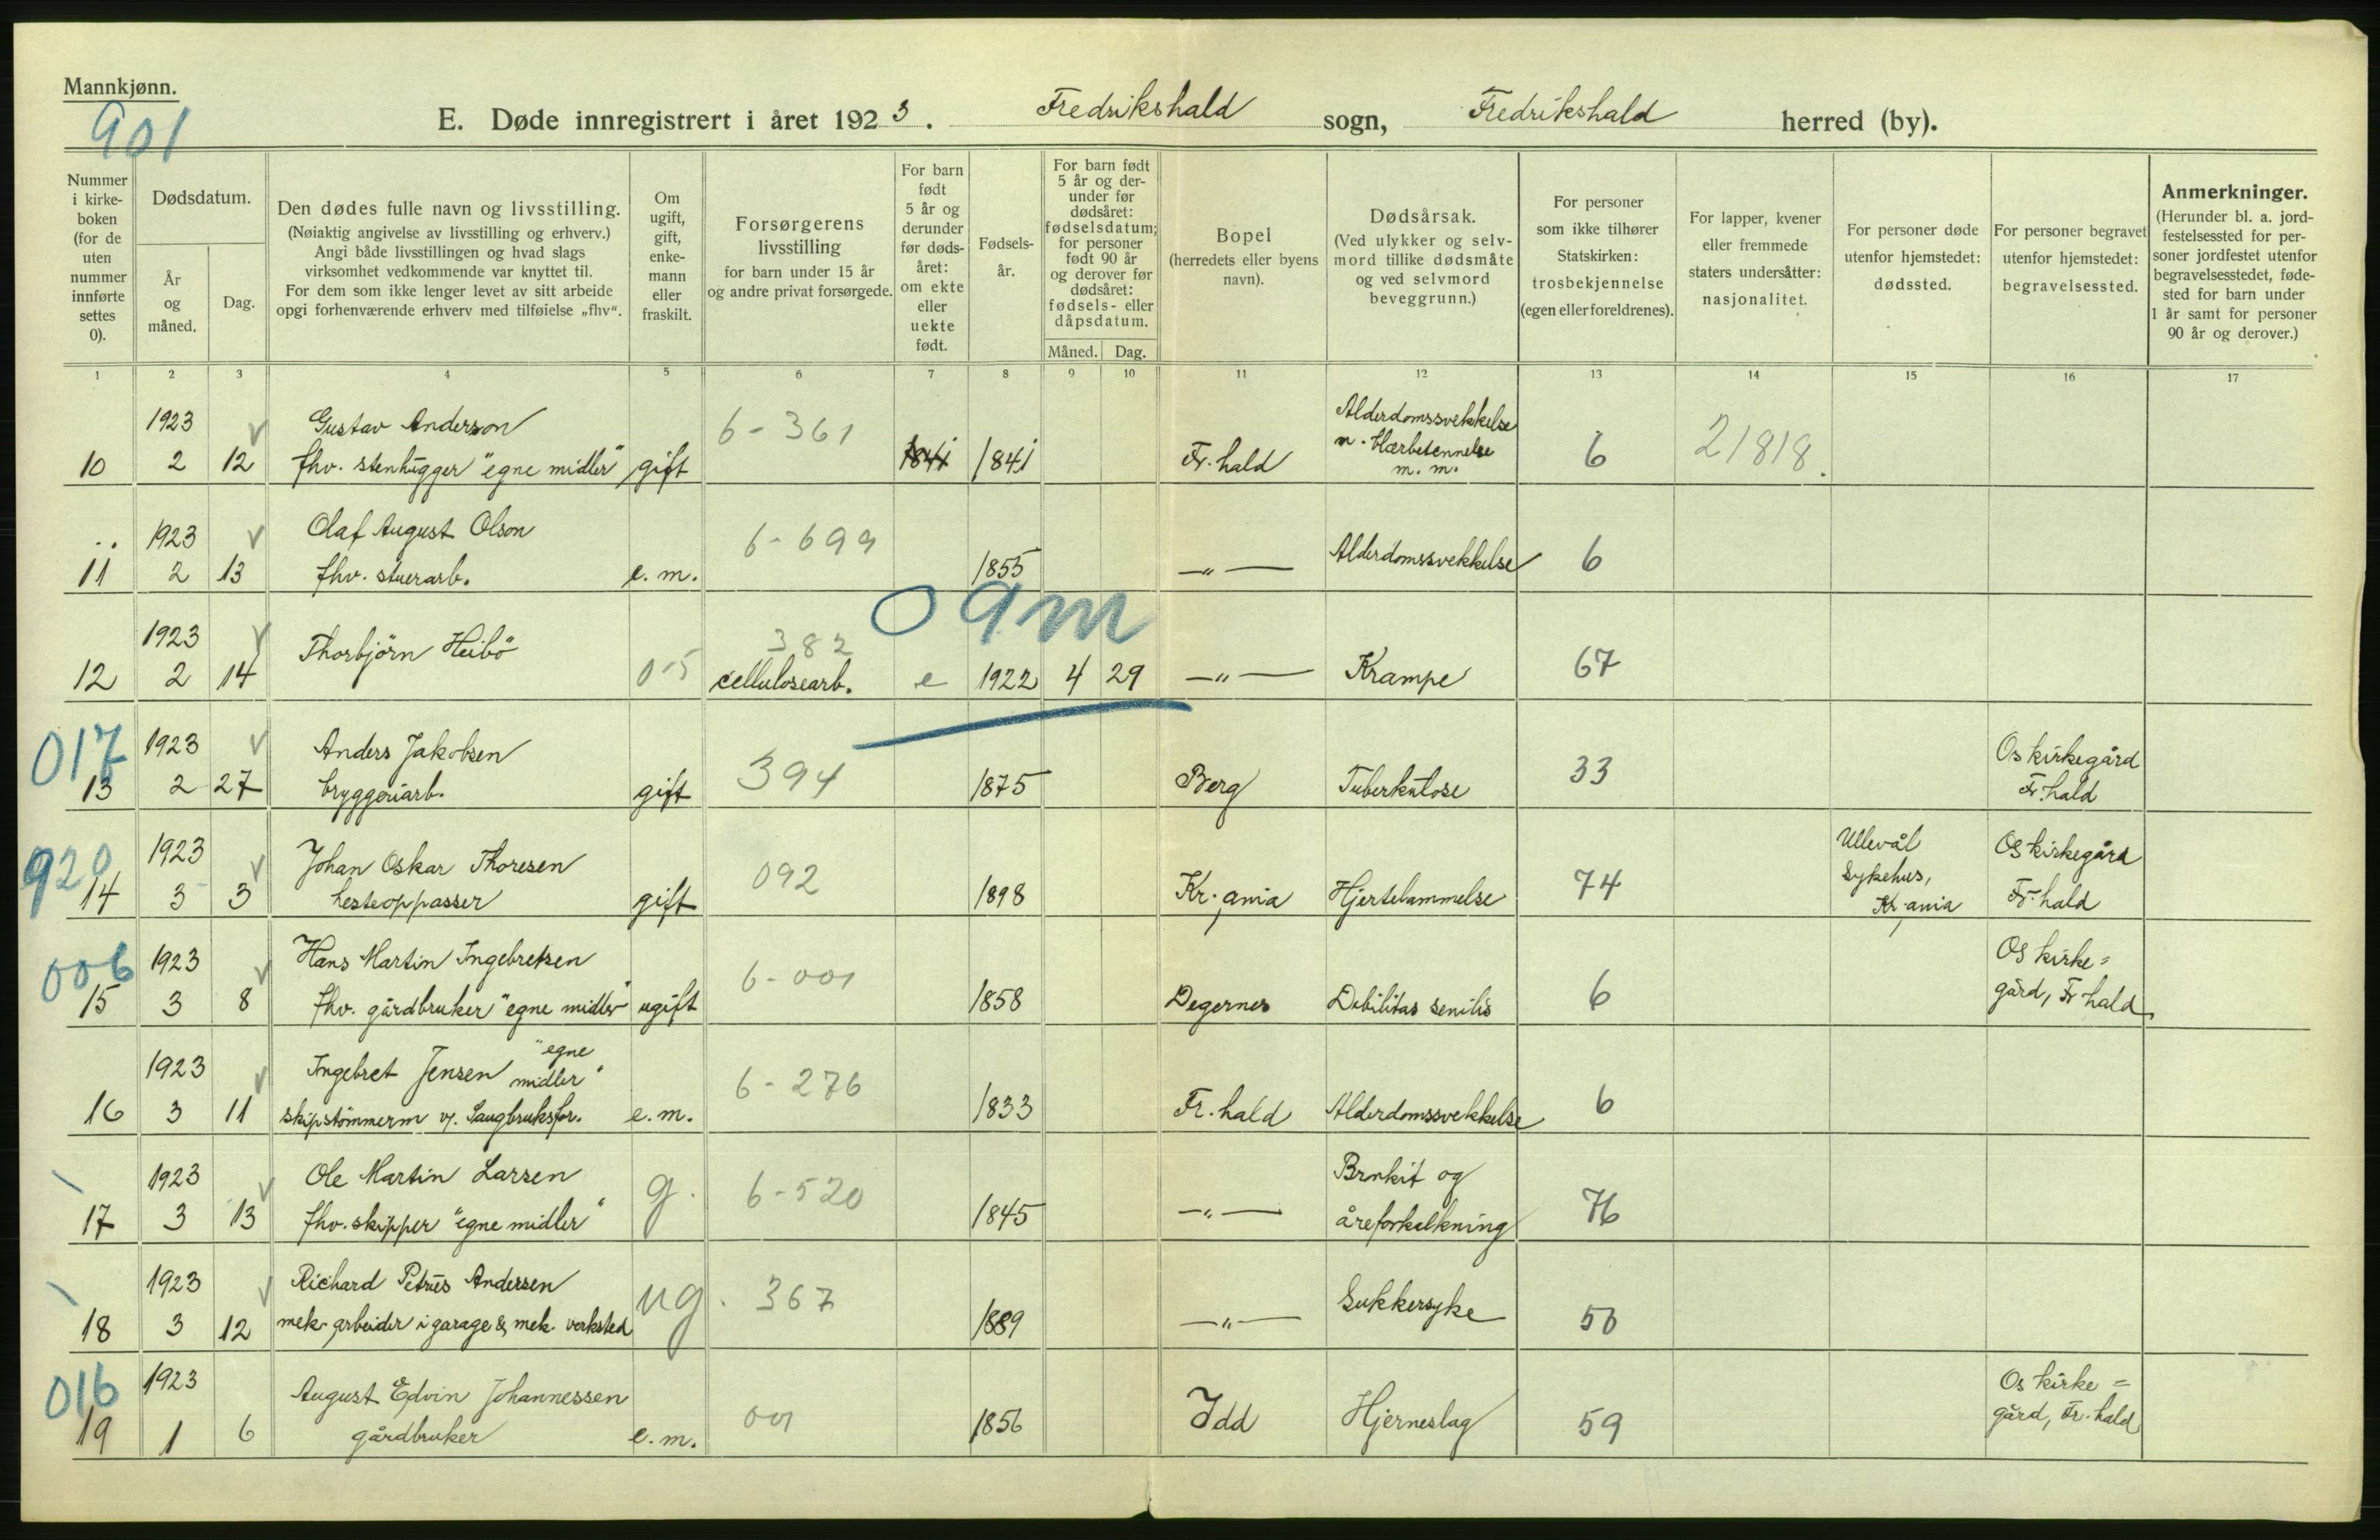 Mannkjønn.
901
E. Døde innregistrert i året 1923. Fredrikshald sogn, Fredrikshald herred (by).
Nummer i kirke-boken (for de uten nummer innførte settes 0).
Dødsdatum.
År og måned.
Dag.
Den dødes fulle navn og livsstilling.
(Nøiaktig angivelse av livsstilling og erhverv.)
Angi både livsstillingen og hvad slags
virksomhet vedkommende var knyttet til.
For dem som ikke lenger levet av sitt arbeide
opgi forhenværende erhverv med tilføielse „fhv“.
Om ugift, gift, enke-mann eller fraskilt.
Forsørgerens
livsstilling
for barn under 15 år
og andre privat forsørgede.
For barn født 5 år og derunder før døds-året: om ekte eller uekte født.
Fødsels-år.
For barn født 5 år og der-under før dødsåret: fødselsdatum; for personer født 90 år og derover før dødsåret: fødsels- eller dåpsdatum.
Måned. Dag.
Bopel
(herredets eller byens navn).
Dødsårsak.
(Ved ulykker og selv-mord tillike dødsmåte og ved selvmord beveggrunn.)
For personer som ikke tilhører Statskirken: trosbekjennelse (egen eller foreldrenes).
For lapper, kvener eller fremmede staters undersåtter: nasjonalitet.
For personer døde utenfor hjemstedet: dødssted.
For personer begravet utenfor hjemstedet: begravelsessted.
Anmerkninger.
(Herunder bl. a. jord-festelsessted for per-soner jordfestet utenfor begravelsesstedet, føde-sted for barn under 1 år samt for personer 90 år og derover.)
1 2 3 4 5 6 7 8 9 10 11 12 13 14 15 16 17
1923 v Gustav Anderson 6-361 Alderdomssvekkelse
10 2 12 fhv. stenhugger "egne midler" gift 1841 1841 Fr.hald m. m. 6 21818.
1923 v Olaf August Olson 6-699
11 2 13 fhv. stuerarb. e.m. 1855 —"— Alderdomssvekkelse 6
09m
1923 v Thorbjörn Heibö 382
12 2 14 0-5 cellulosearb. e 1922 4 29 —"— Krampe 67
017 1923 v Anders Jakobsen 394 Os kirkegård
13 2 27 bryggeriarb. gift 1875 Berg Tuberkulose 33 Fr.hald
920 1923 v Johan Oskar Thoresen 092 Ullevål Sykehus, Os kirkegård
14 3 3 hesteoppasser gift 1898 Kr.ania Hjertelammelse 74 Kr.ania Fr.hald
006 1923 v Hans Martin Ingebretsen 6-001 Os kirke=
15 3 8 fhv. gårdbruker "egne midler" ugift 1858 Degernes Debilitas senilis 6 gård, Fr hald
1923 v Ingebret Jensen "egne midler" 6-276
16 3 11 skipstömmerm v. Saugbruksfor. e.m. 1833 Fr.hald Alderdomssvekkelse 6
1923 v Ole Martin Larsen g. 6-520 Bronkit og
17 3 13 fhv. skipper "egne midler" 1845 —"— åreforkalkning 76
1923 v Richard Petrus Andersen ug. 367
18 3 12 mek. arbeider i garage & mek. verksted 1889 —"— Sukkersyke 50
016 1923 August Edvin Johannessen 001 Os kirke=
19 1 6 gårdbruker e.m. 1856 Idd Hjerneslag 59 gård, Fr.hald